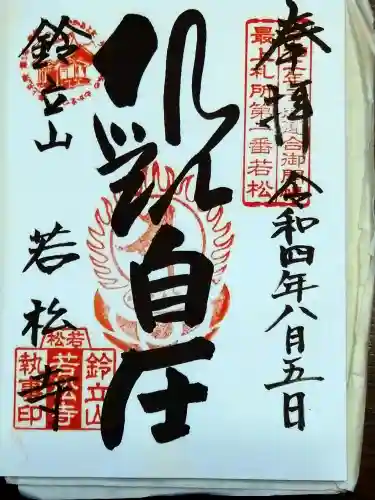 奉拝
令和四年八月五日
最上札所第一番若松
自在
鈴立山
若松寺
若松
鈴立山
若松寺
執事印